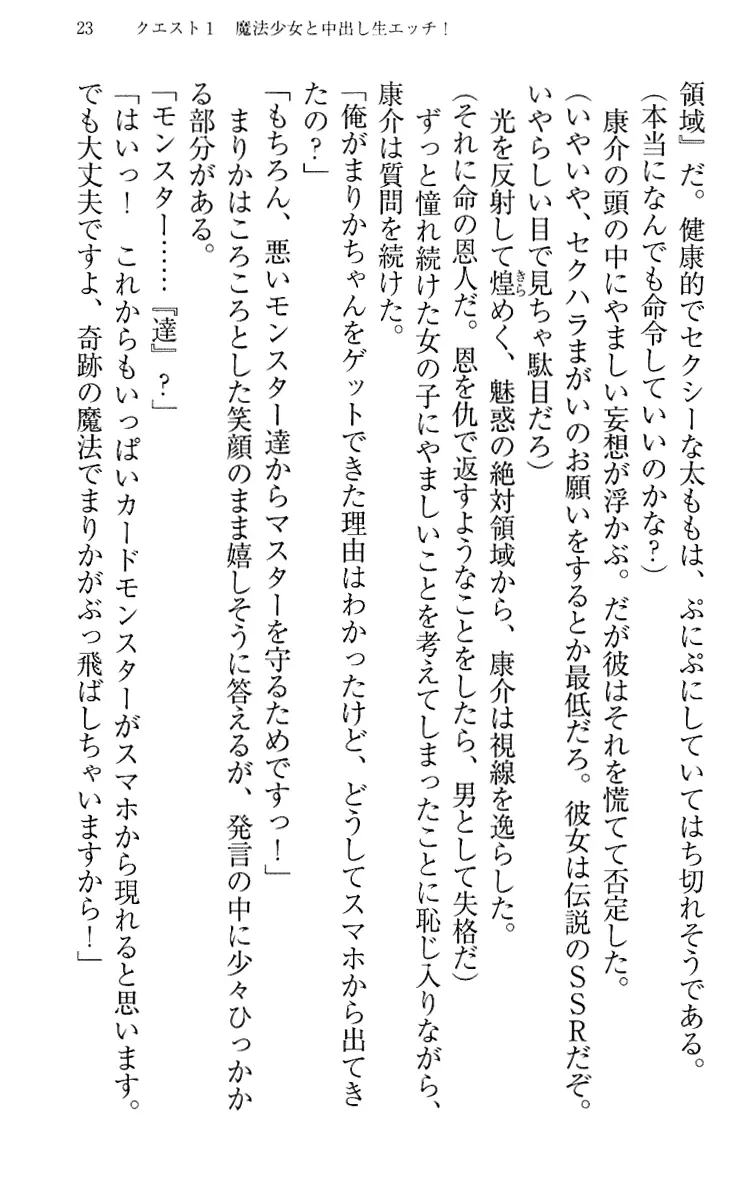 23　クエスト1　魔法少女と中出し生エッチ！
領域』だ。健康的でセクシーな太ももは、ぷにぷにしていてはち切れそうである。
（本当になんでも命令していいのかな？）
　康介の頭の中にやましい妄想が浮かぶ。だが彼はそれを慌てて否定した。
（いやいや、セクハラまがいのお願いをするとか最低だろ。彼女は伝説のＳＳＲだぞ。
いやらしい目で見ちゃ駄目だろ）
　光を反射して煌きらめく、魅惑の絶対領域から、康介は視線を逸らした。
（それに命の恩人だ。恩を仇で返すようなことをしたら、男として失格だ）
　ずっと憧れ続けた女の子にやましいことを考えてしまったことに恥じ入りながら、
康介は質問を続けた。
「俺がまりかちゃんをゲットできた理由はわかったけど、どうしてスマホから出てき
たの？」
「もちろん、悪いモンスター達からマスターを守るためですっ！」
　まりかはころころとした笑顔のまま嬉しそうに答えるが、発言の中に少々ひっかか
る部分がある。
「モンスター……『達』？」
「はいっ！　これからもいっぱいカードモンスターがスマホから現れると思います。
でも大丈夫ですよ、奇跡の魔法でまりかがぶっ飛ばしちゃいますから！」